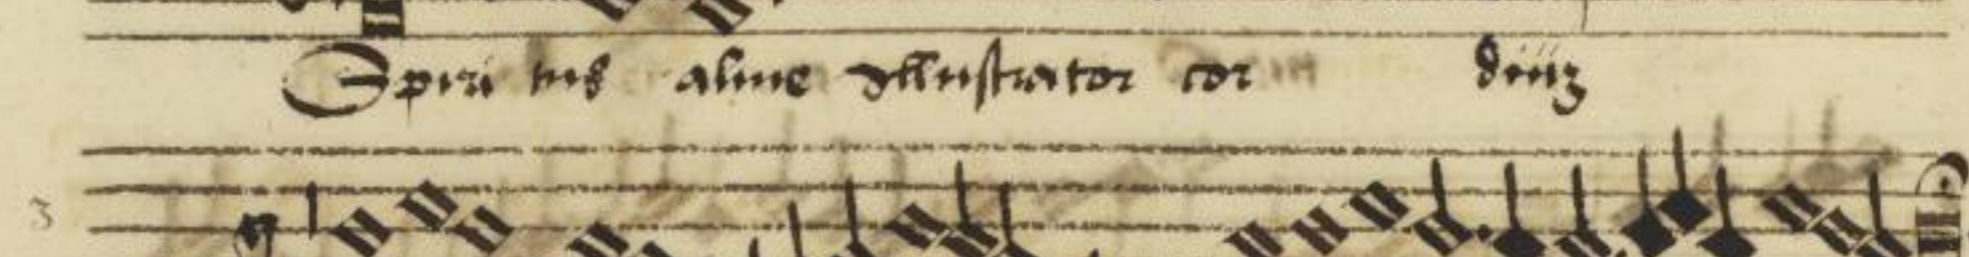 Spiri tus alme Illustrator cor diuz
3